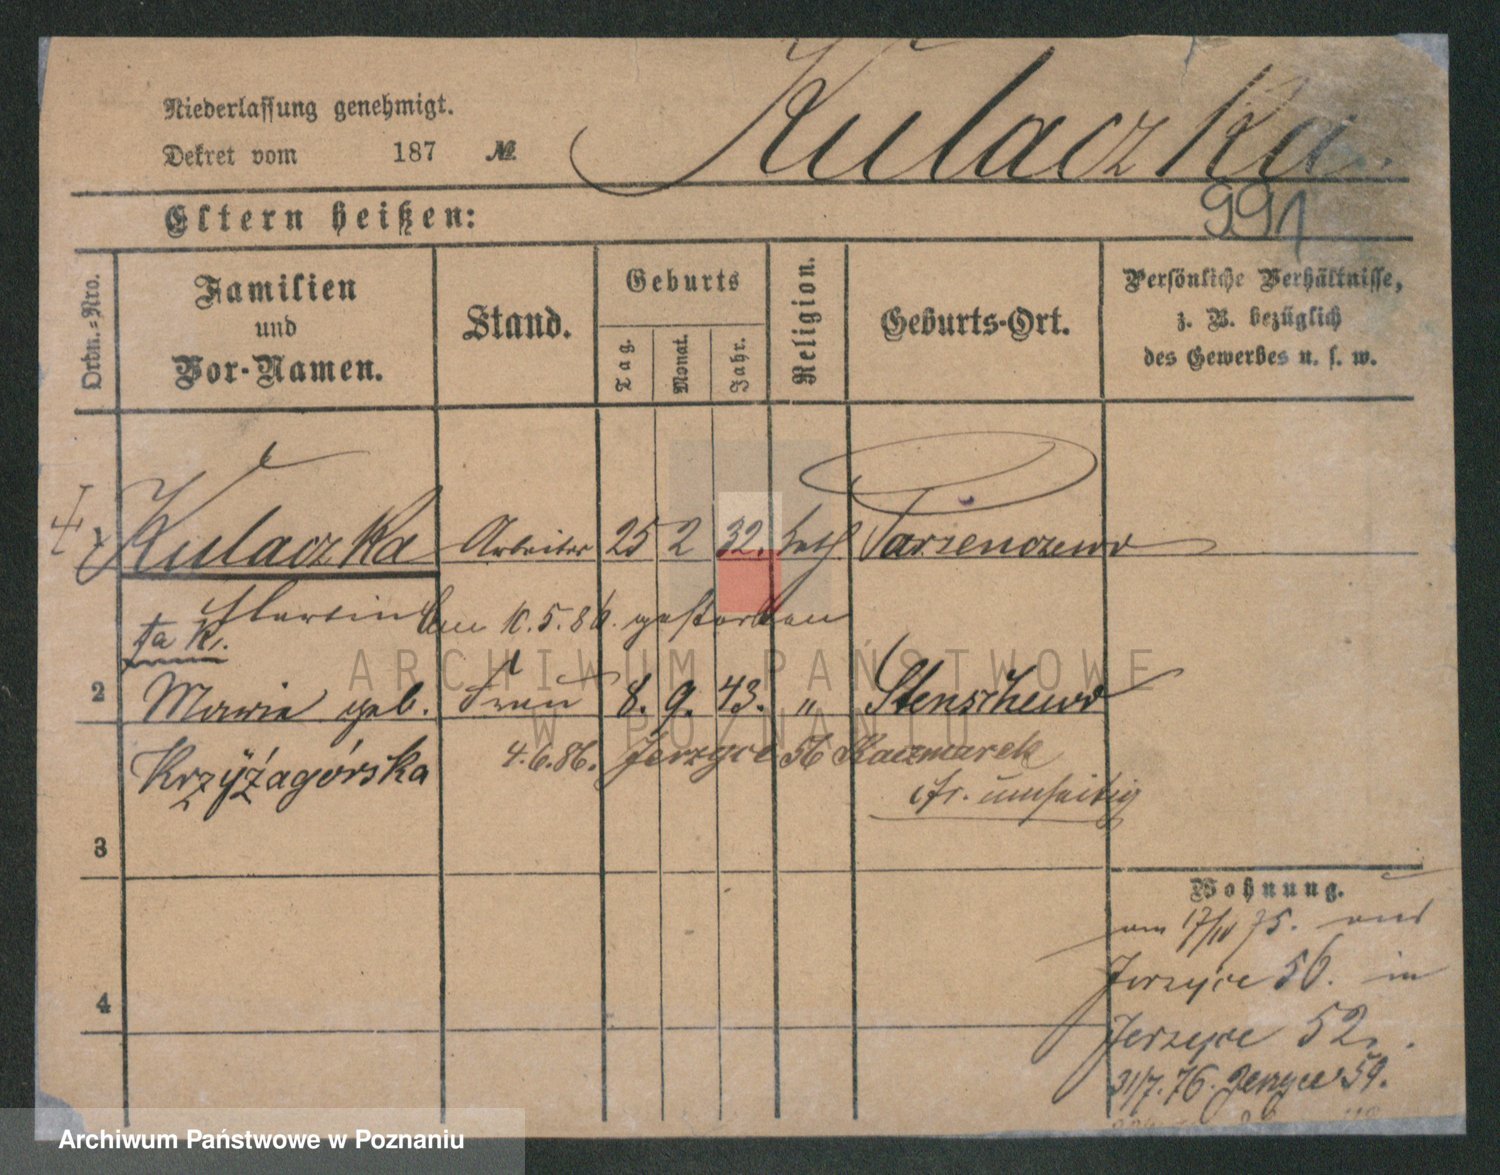 Niederlassung genehmigt.
Dekret vom 187 №
Kulaczka.
991
Eltern heißen:
Ordn.=Nro.
Familien
und
Vor-Namen.
Stand.
Geburts
Tag.
Monat.
Jahr.
Religion.
Geburts-Ort.
Persönliche Verhältnisse,
z. B. bezüglich
des Gewerbes u. s. w.
1 Kulaczka Arbeiter 25 2 32. kath Parzenczewo
Martin am 10.5.86. gestorben
2 Marie geb. Frau 8. 9. 43. " Stenschewo
Krzyżagórska 4.6.86. Jerzyce 56 Kaczmarek
cfr. umseitig
3
Wohnung.
am 17/IV 75. aus
Jerzyce 56. in
4
Jerzyce 52.
31/7.76. Jerzyce 59.
ARCHIWUM PAŃSTWOWE
W POZNANIU
Archiwum Państwowe w Poznaniu